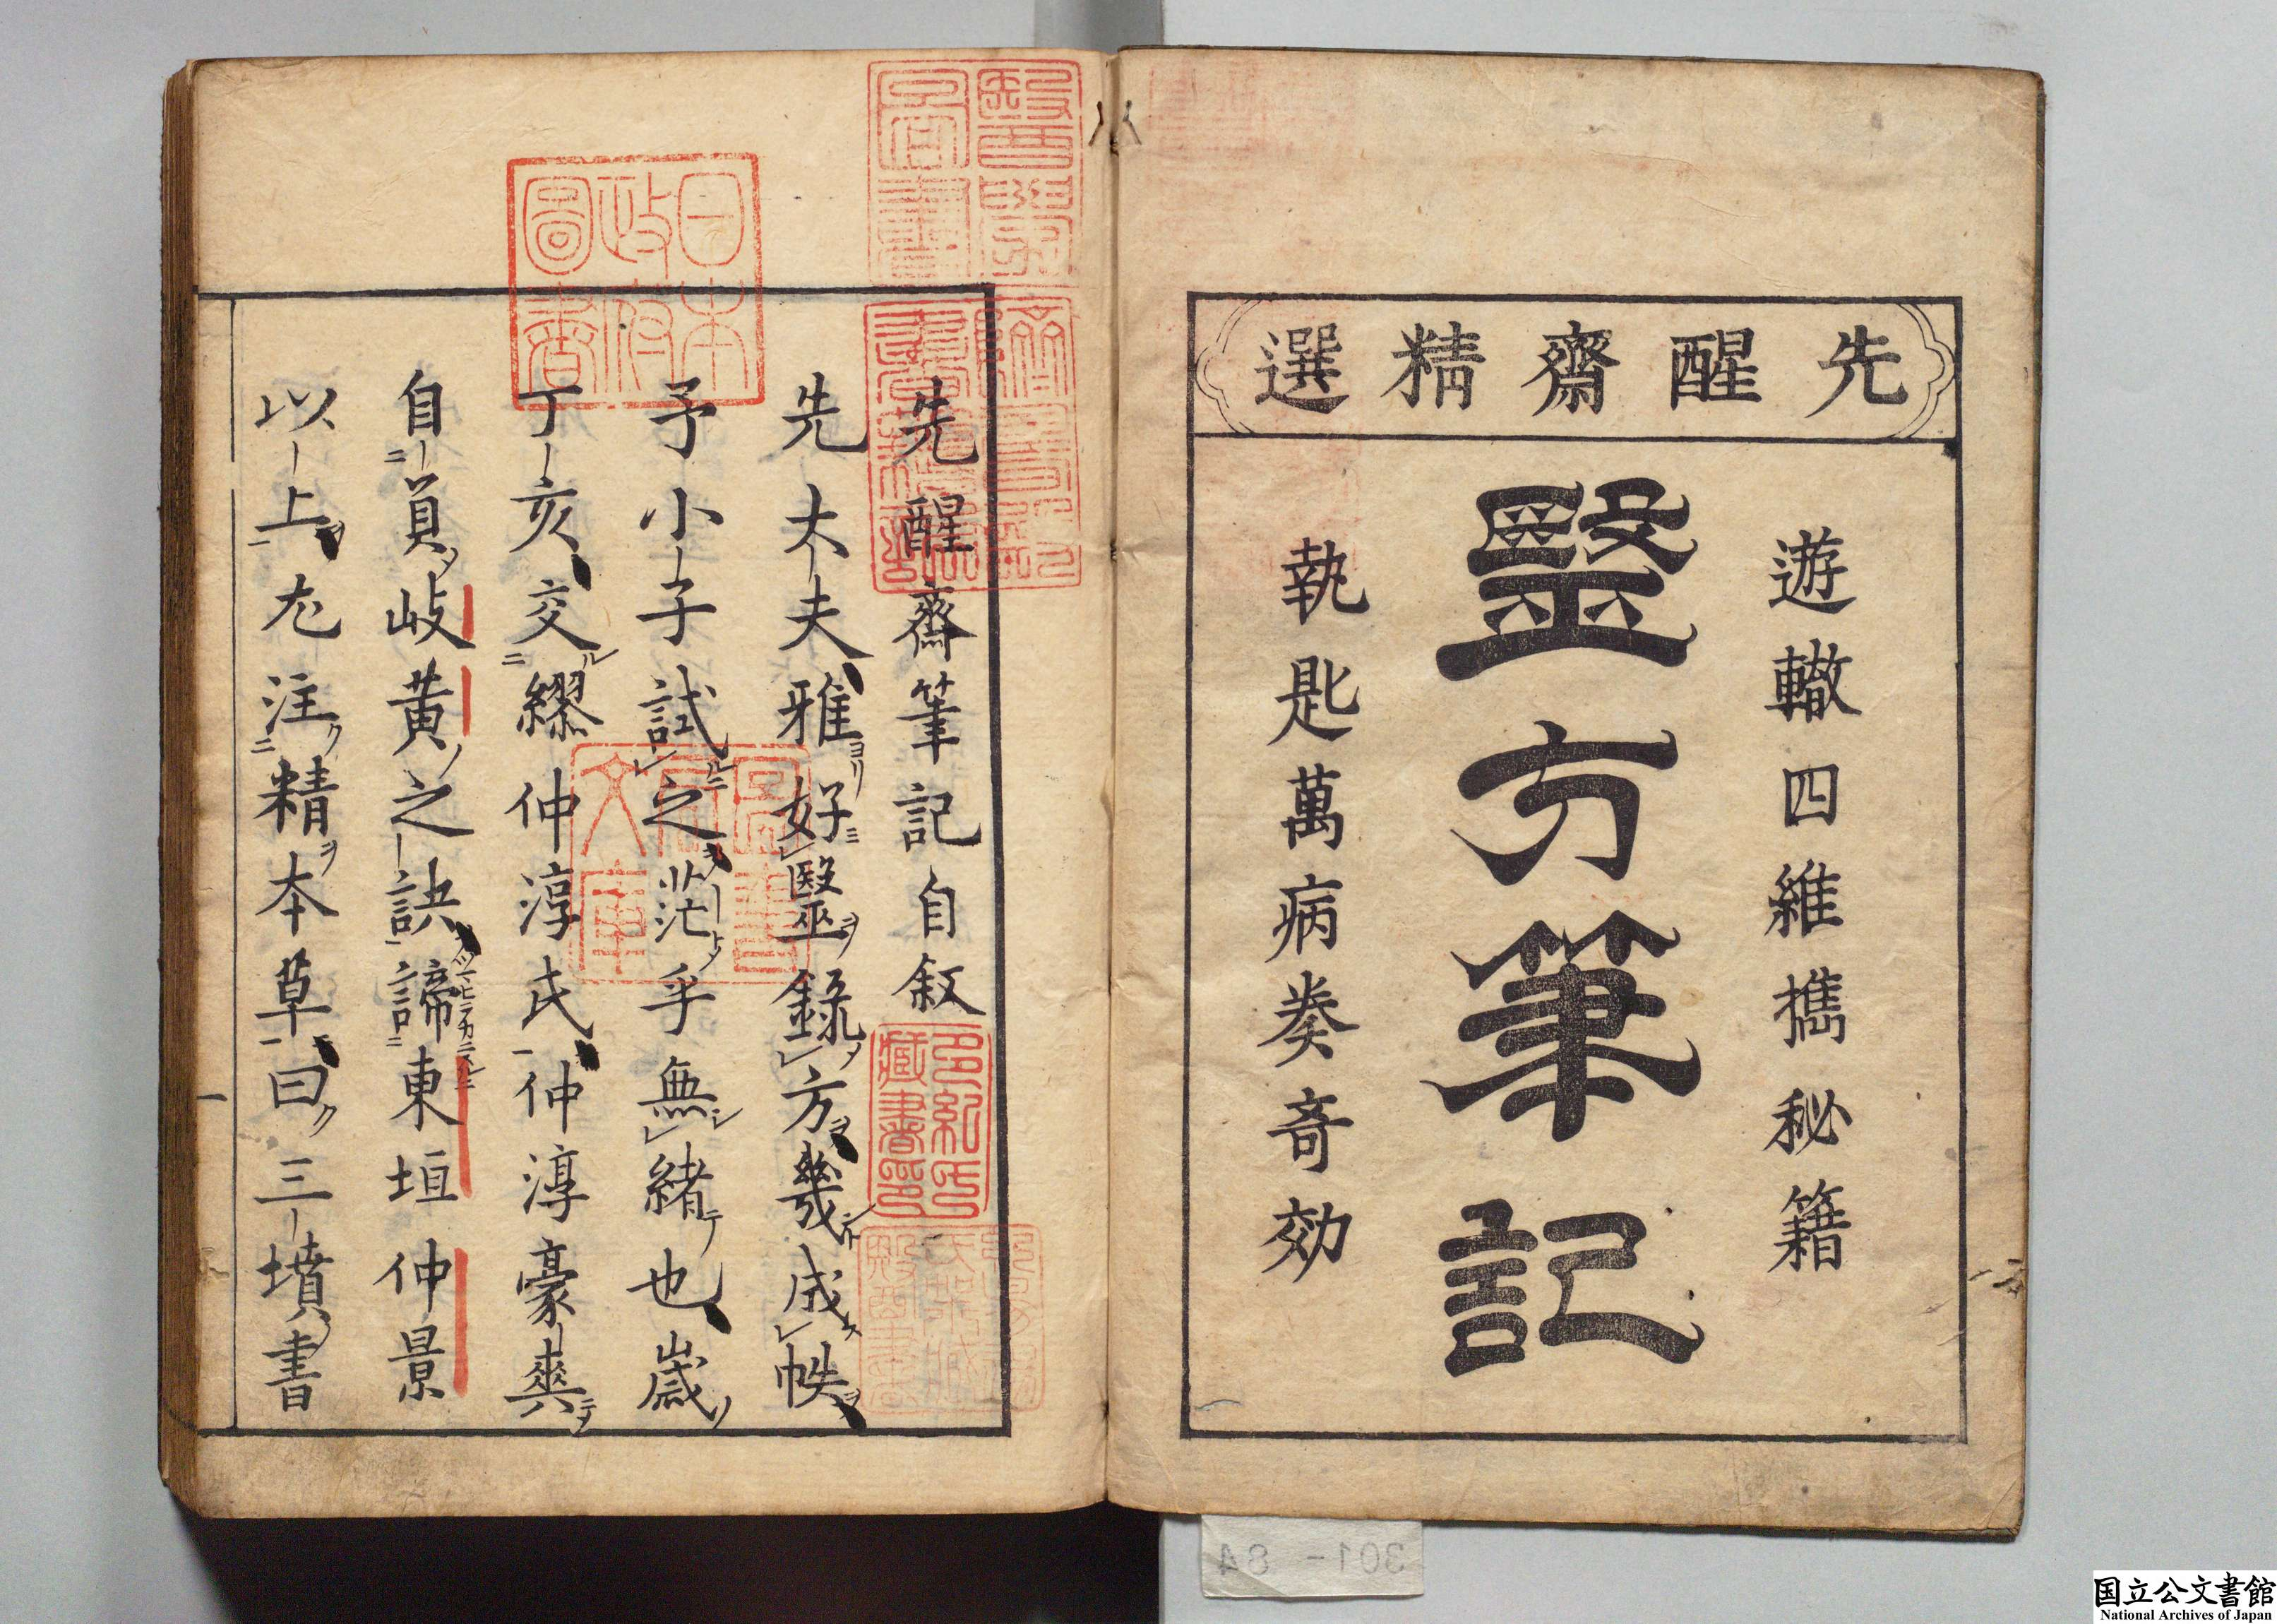 先醒齋精選
遊轍四維擕秘籍
毉方筆記
執匙萬病奏奇効
先醒齋筆記自敘
先大夫雅好毉錄方幾成帙
予小子試之茫乎無緒也歲
丁亥交繆仲淳氏仲淳豪爽
自負岐黃之訣諦東垣仲景
以上尤注精本草曰三墳書
一
日本
政府
圖書
多紀氏
藏書印
301-84
国立公文書館
National Archives of Japan